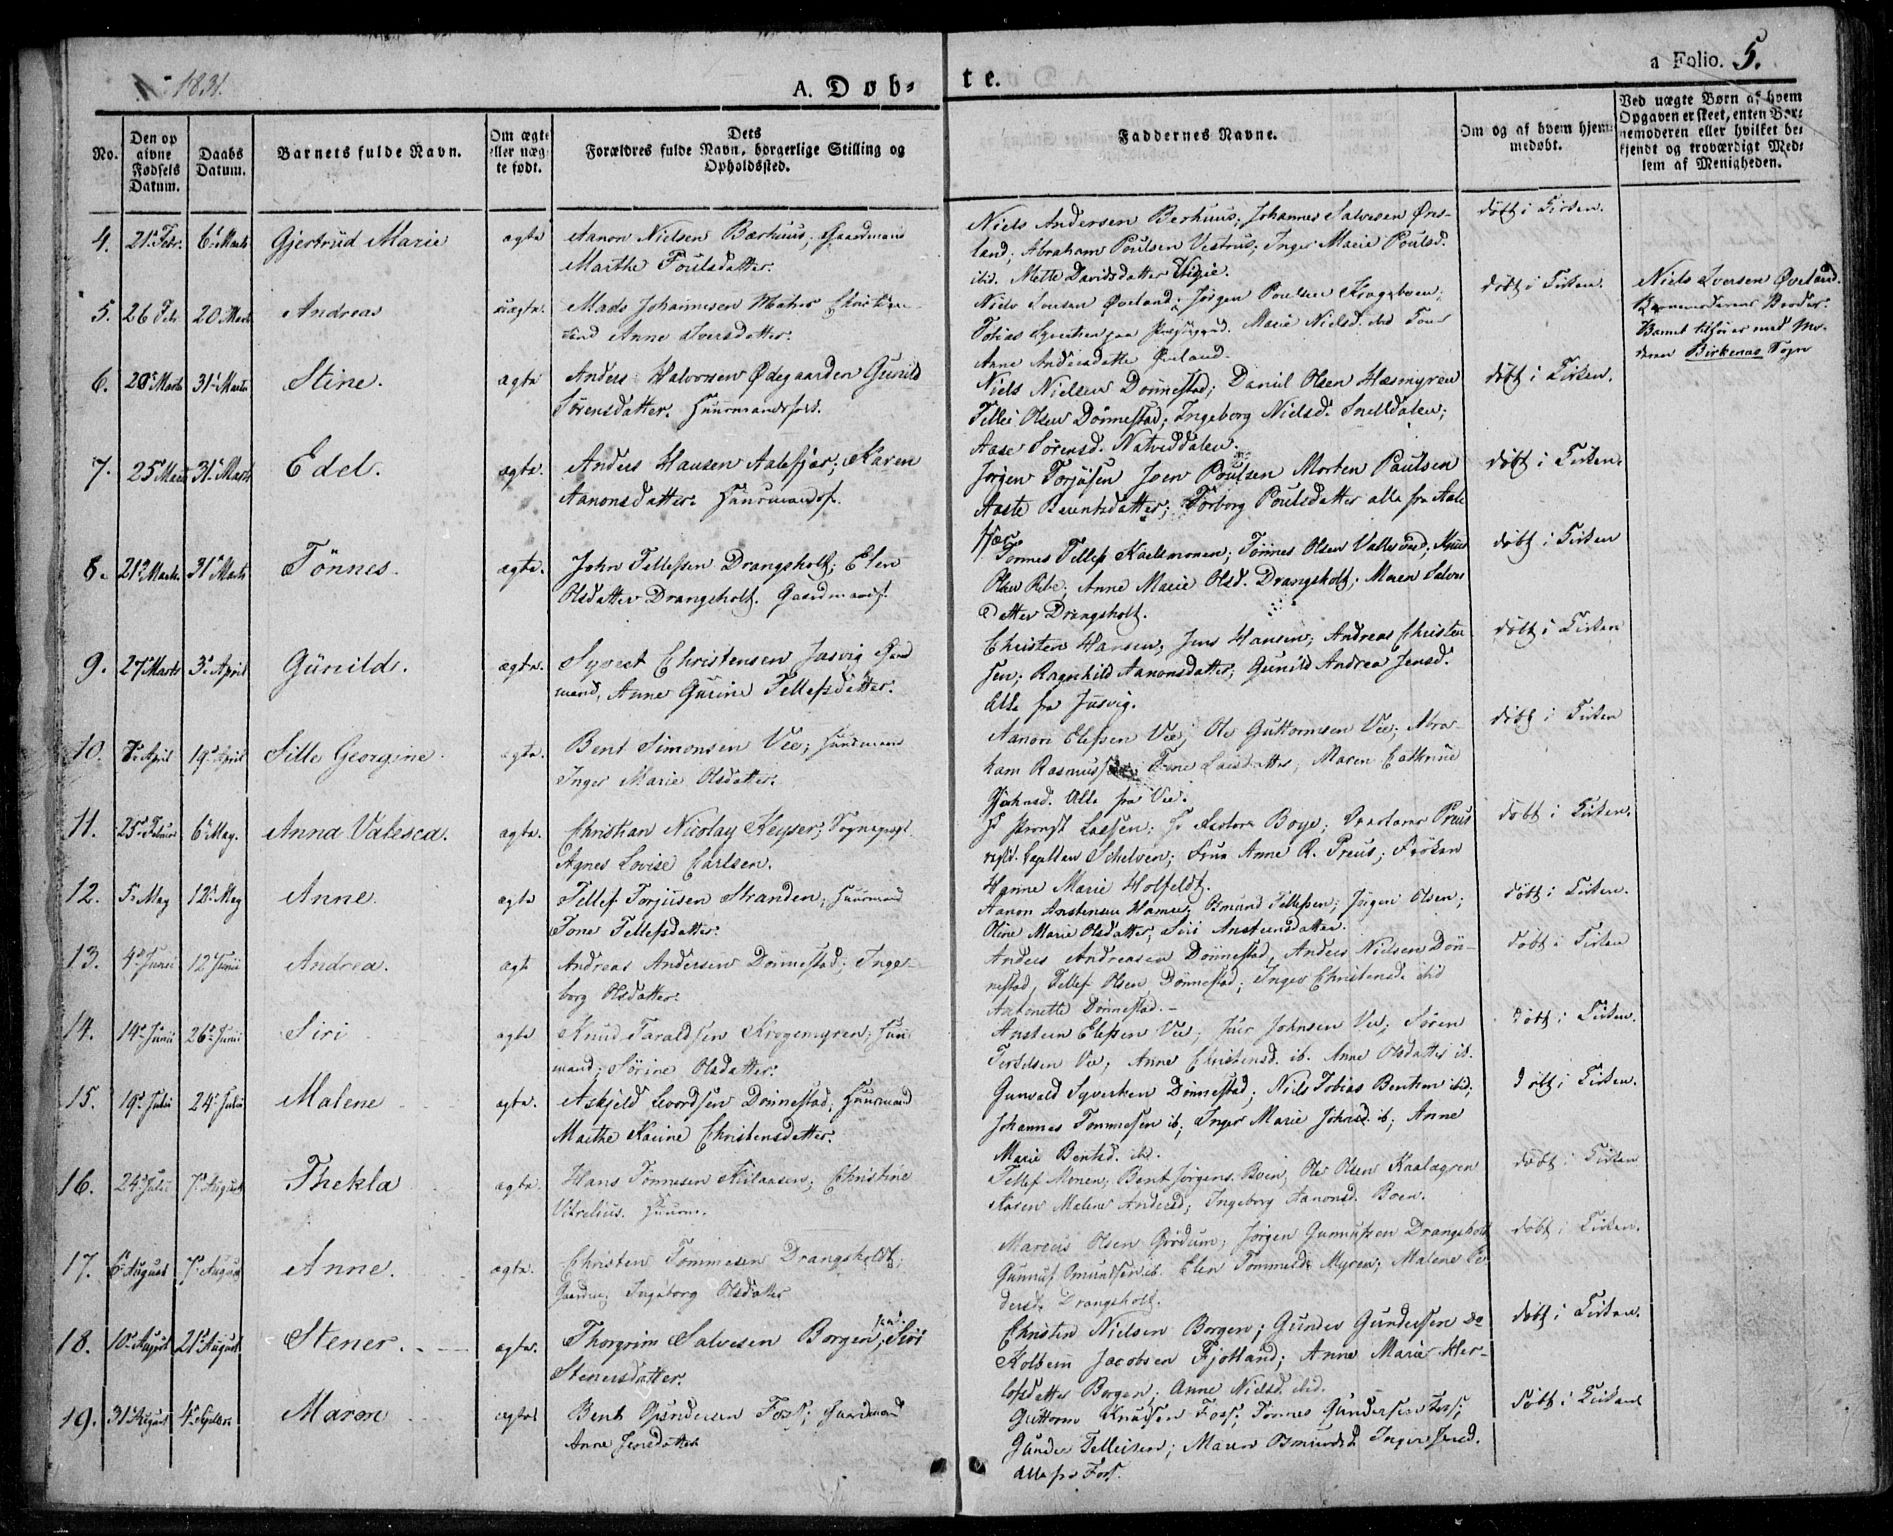 1831.
A. Døb-
te.
a Folio. 5.
No.
Den op
givne
Fødsels
Datum.
Daabs
Datum.
Barnets fulde Navn.
Om ægte
eller uæg
te født.
Dets
Forældres fulde Navn, borgerlige Stilling og
Opholdssted.
Faddernes Navne.
Om og af hvem hjem-
medøbt.
Ved uægte Børn af hvem
Opgaven er skeet, enten Bar-
nemoderen eller hvilket be-
kjendt og troværdigt Med-
lem af Menigheden.
4. 21 Febr. 6 Marts Gjertrüd Marie ægte Aanon Nielsen Bærhuus; Gaardmand
Marthe Poulsdatter.
Niels Andersen Berhuus; Johannes Salvesen Øvre-
land; Abraham Poulsen Vestrus; Inger Marie Poulsd.
ibid. Mette Davidsdatter
døbt i Kirken.
5. 26 Febr 20 Marts Andreas uægte. Mads Johannesen Christian-
sand Anne Iversdatter.
Niels Iversen Øveland; Jörgen Poulsen
Tobias Marie Nielsd.
Anne Andersdatter Øveland.
døbt i Kirken.
Niels Iversen Øveland.
Barnemoderens Broder.
Barnet tilfører med Mo-
deren Birkenæs Sogn
6. 20 Marts 31 Marts Stine. ægte Anders Halvorsen Ødegaarden Gunild
Sørensdatter. Huusmandsfolk.
Niels Nielsen Dønnestad; Daniel Olsen Hæsmyren
Tellef Olsen Dønnestad; Ingeborg Nielsd. Snelldalen;
Aase Sørensd. Natveddalen.
døbt i Kirken.
7. 25 Marts 31 Marts Edel. ægte. Anders Hansen Aalefjær; Karen
Aanonsdatter. Huusmandsf.
Jørgen Torjüsen Joen Poulsen Morten Paulsen
Aaste Berentsdatter; Torborg Poulsdatter alle fra Aale
fjær
døbt i Kirken.
8. 21 Marts 31 Marts Tönnes. ægte. John Tellefsen Drangsholt; Elen
Olsdatter Drangsholt. Gaardmandsf.
Tönnes Tellefs Tönnes Olsen
Olsen Anne Marie Olsd. Drangsholt; Maren Salves
datter Drangsholt.
døbt i Kirken
9. 27 Marts 3 April Günild. ægte. Syvert Christensen Jusvig Gaard
mand, Anne Gurine Tellefsdatter.
Christen Hansen; Jens Hansen; Andreas Christen
sen; Ragnhild Aanonsdatter; Gunild Andrea Jensd.
Alle fra Jusvig.
døbt i Kirken
10. 7 April 19 April Sille Georgine. ægte. Bent Simonsen Vee; Huusmand
Inger Marie Olsdatter.
Aanon Elefsen Vee; Ole Guttormsen Vee; Abra-
ham Rasmussen Tone Larsdatter; Maren Cathrine
Johnsd. Alle fra Vee.
døbt i Kirken
11. 25 Febuar 6 May. Anna Valesca. ægte. Christian Nicolay Keyser; Sogneprest
Agnes Lovise Carlsen.
Hr Provst Lassen; Hr Pastor Boye; Preus
resid. Capellan Schelven; Frue Anne R. Preus; Frøken
Hanne Marie Holfeldt.
døbt i Kirken.
12. 5 May 12 May Anne. ægte Tellef Torjüsen Stranden; Huusmand
Tone Tellefsdatter.
Aanon Anstensen Hamre; Osmund Tellefsen; Jörgen Olsen;
Oline Marie Olsdatter; Siri Anstensdatter.
døbt i Kirken.
13. 4 Junii 12 Junii Andrea. ægte Andreas Andersen Dønnestad; Inge-
borg Olsdatter.
Anders Andreasen Dønnestad, Anders Nielsen Døn-
nestad, Tellef Olsen Dønnestad; Inger Christensd. ibid
Antonette Dønnestad.
døbt i Kirken
14. 14 Junii 26 Junii Siri ægte Knud Taraldsen Krogemyren; Huus
mand; Sørine Olsdatter.
Ansteen Elefsen Vee; Iver Johnsen Vee; Søren
Terkelsen Vee; Anne Christensd. ib. Anne Olsdatter ib.
døbt i Kirken.
15. 19 Julii 24 Julii Malene ægte. Askjeld Leordsen Dønnestad; Huusmand
Marthe Karine Christensdatter.
Gunvald Syvertsen Dønnestad; Niels Tobias Bentsen ibid;
Johannes Tommesen ib; Inger Marie Johnsd. ib; Anne
Marie Bentsd. ibd.
døbt i Kirken.
16. 24 Julii 7 August Thekla ægte. Hans Tönnesen Christine
Vitrelius. Huusm.
Tellef Monen; Bent Jørgens. Boen; Ole Olsen
Karen Malene Andersd; Ingeborg Aanonsd. Boen.
døbt i Kirken
17. 6 August 7 August Anne. ægte. Christen Tommesen Drangsholdt;
Gaardm; Ingeborg Olsdatter
Marcus Olsen Jörgen Gunnufsen Drangsholt
Gunnuf Osmundsen ib. Elen Tommesd. Myren; Malene Pe-
dersd. Drangsholt.
døbt i Kirken.
18. 10 August 21 August Stener. ægte. Thorgrim Salvesen Borgen; Siri
Stenersdatter.
Christen Nielsen Borgen; Gunder Gundersen do
Kolbein Jacobsen Fjotland; Anne Marie Her-
lofsdatter Borgen; Anne Nielsd. ibid.
døbt i Kirken.
19. 31 August 4 Septem Maren ægte Bent Gundersen Foss; Gaardmand
Anne Jensdatter
Guttorm Knudsen Foss; Tønnes Gundersen Foss;
Gunder Tellefsen; Maren Osmundsd. Inger Jensd.
Alle fra Foss.
døbt i Kirken